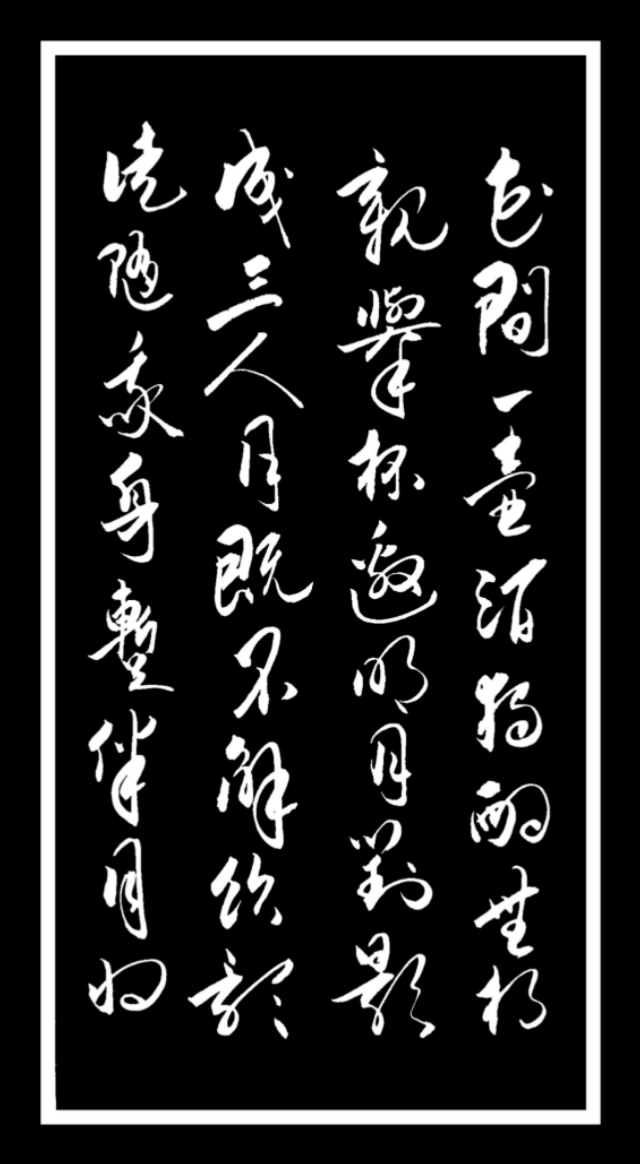 花間一壺酒獨酌無相
親舉杯邀明月對影
成三人月既不解飲影
徒隨我身暫伴月將